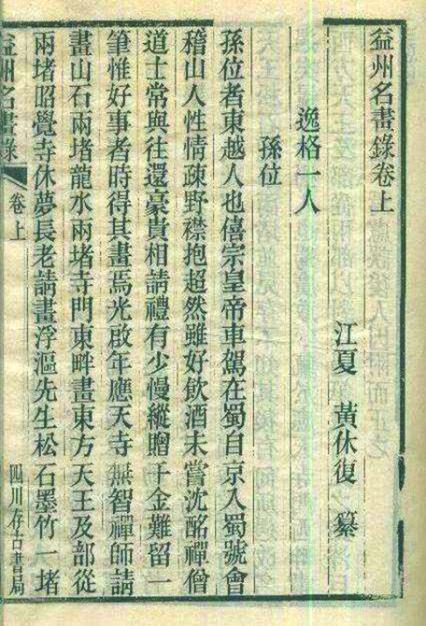 益州名畫錄卷上
江夏 黃休復 纂
逸格一人
孫位
孫位者東越人也僖宗皇帝車駕在蜀自京入蜀號會
稽山人性情疎野襟抱超然雖好飲酒未嘗沈酩禪僧
道士常與往還豪貴相請禮有少慢縱贈千金難留一
筆惟好事者時得其畫焉光啟年應天寺無智禪師請
畫山石兩堵龍水兩堵寺門東畔畫東方天王及部從
兩堵昭覺寺休夢長老請畫浮漚先生松石墨竹一堵
益州名畫錄
卷上
四川存古書局